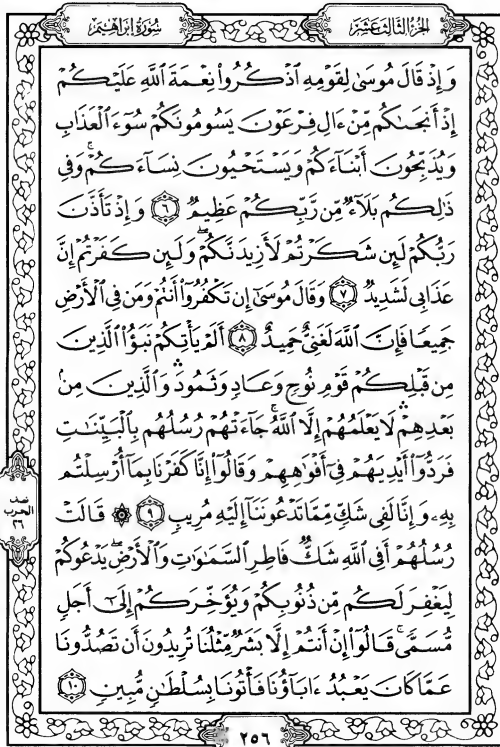 الجزء الثالث عشر
سورة إبراهيم
وَإِذۡ قَالَ مُوسَىٰ لِقَوۡمِهِ ٱذۡكُرُواْ نِعۡمَةَ ٱللَّهِ عَلَيۡكُمۡ
إِذۡ أَنجَىٰكُم مِّنۡ ءَالِ فِرۡعَوۡنَ يَسُومُونَكُمۡ سُوٓءَ ٱلۡعَذَابِ
وَيُذَبِّحُونَ أَبۡنَآءَكُمۡ وَيَسۡتَحۡيُونَ نِسَآءَكُمۡۚ وَفِي
ذَٰلِكُم بَلَآءٞ مِّن رَّبِّكُمۡ عَظِيمٞ ٦ وَإِذۡ تَأَذَّنَ
رَبُّكُمۡ لَئِن شَكَرۡتُمۡ لَأَزِيدَنَّكُمۡۖ وَلَئِن كَفَرۡتُمۡ إِنَّ
عَذَابِي لَشَدِيدٞ ٧ وَقَالَ مُوسَىٰٓ إِن تَكۡفُرُوٓاْ أَنتُمۡ وَمَن فِي ٱلۡأَرۡضِ
جَمِيعٗا فَإِنَّ ٱللَّهَ لَغَنِيٌّ حَمِيدٌ ٨ أَلَمۡ يَأۡتِكُمۡ نَبَؤُاْ ٱلَّذِينَ
مِن قَبۡلِكُمۡ قَوۡمِ نُوحٖ وَعَادٖ وَثَمُودَۛ وَٱلَّذِينَ مِنۢ
بَعۡدِهِمۡۛ لَا يَعۡلَمُهُمۡ إِلَّا ٱللَّهُۚ جَآءَتۡهُمۡ رُسُلُهُم بِٱلۡبَيِّنَٰتِ
فَرَدُّوٓاْ أَيۡدِيَهُمۡ فِيٓ أَفۡوَٰهِهِمۡ وَقَالُوٓاْ إِنَّا كَفَرۡنَا بِمَآ أُرۡسِلۡتُم
بِهِۦ وَإِنَّا لَفِي شَكّٖ مِّمَّا تَدۡعُونَنَآ إِلَيۡهِ مُرِيبٖ ٩ ۞ قَالَتۡ
رُسُلُهُمۡ أَفِي ٱللَّهِ شَكّٞ فَاطِرِ ٱلسَّمَٰوَٰتِ وَٱلۡأَرۡضِۖ يَدۡعُوكُمۡ
لِيَغۡفِرَ لَكُم مِّن ذُنُوبِكُمۡ وَيُؤَخِّرَكُمۡ إِلَىٰٓ أَجَلٖ
مُّسَمّٗىۚ قَالُوٓاْ إِنۡ أَنتُمۡ إِلَّا بَشَرٞ مِّثۡلُنَا تُرِيدُونَ أَن تَصُدُّونَا
عَمَّا كَانَ يَعۡبُدُ ءَابَآؤُنَا فَأۡتُونَا بِسُلۡطَٰنٖ مُّبِينٖ ١٠
نصف
الحزب
٢٦
٢٥٦